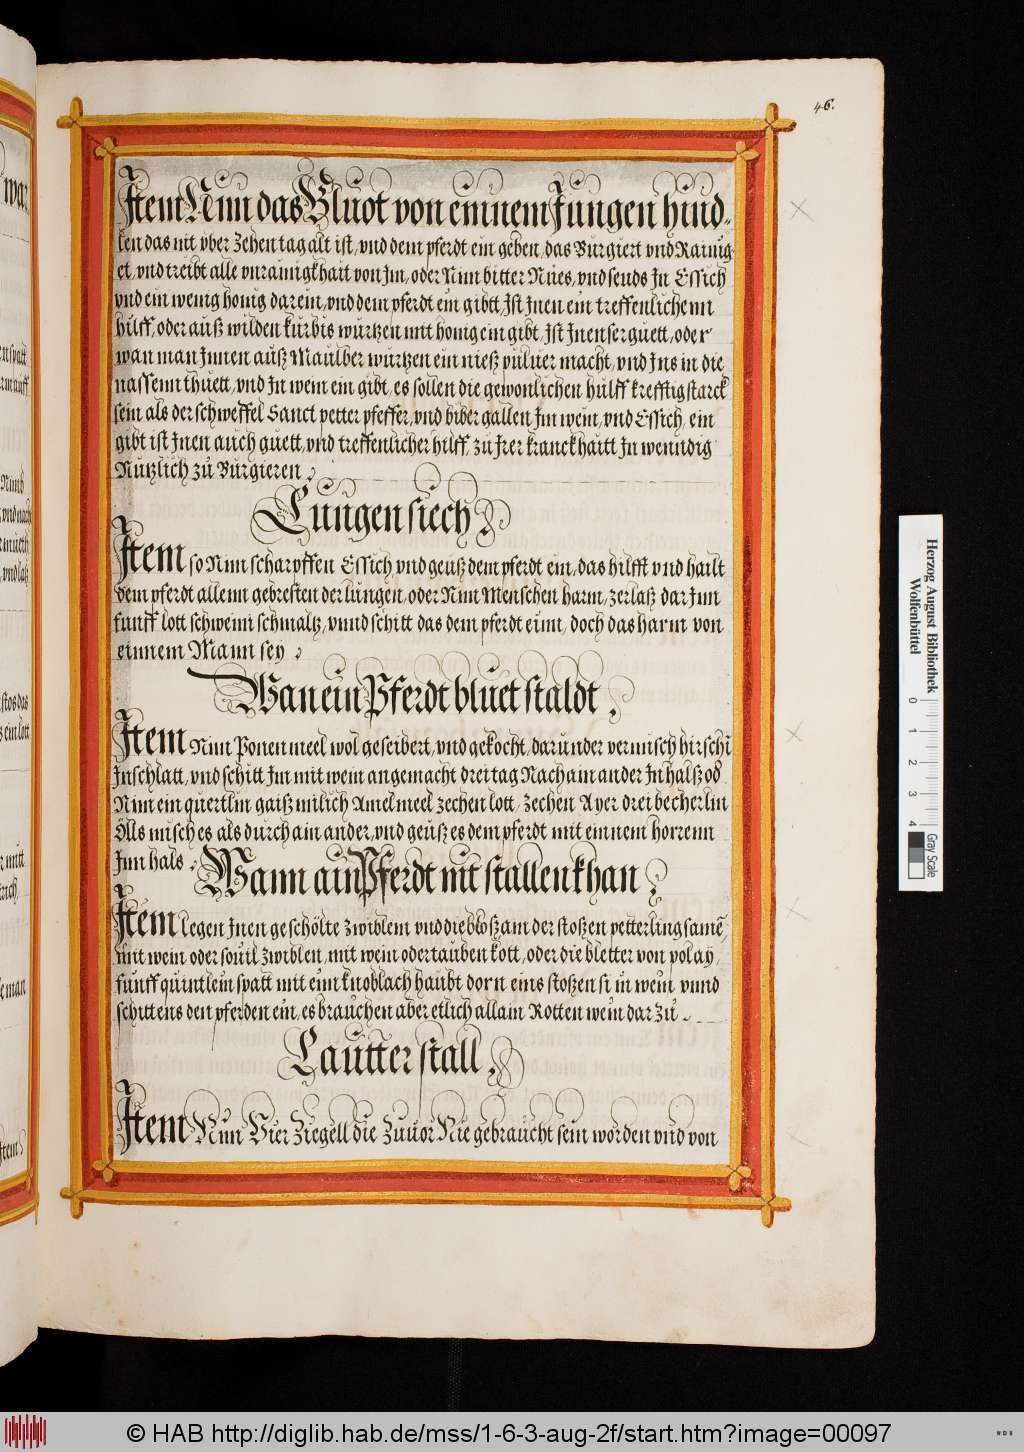 46.
Item Nim das Bluot von einnem Jungen hünd-
len das nit vber Zehen tag alt ist, vnd dem pferdt ein geben, das Burgiert vnd Rainig-
et, vnd treibt alle vnrainigkhait von Im, oder Nim bitter Nües, vnd seuds In Essich
vnd ein wenig honig darein, vnd dem pferdt ein gibtt, Ist Inen ein treffenliche inn
hilff, oder auß wilden kürbis würtzen mit honig ein gibt, Ist Inen ser guett, oder
wan man Innen auß Maulber würtzen ein nieß puluer macht, vnd Ins in die
nassenn thuett, vnd In wein ein gibt, es sollen die gewonlichen hülff krefftig starck
sein als der schweffel Sanct petter pfeffer, vnd biber gallen Im wein, vnd Essich, ein
gibt ist Inen auch guett, vnd treffenlicher hilff, zu Irer kranckhaitt In wenndig
Nützlich zu Burgieren
Lungen siech
Item so Nim scharpffen Essich vnd geüß dem pferdt ein, das hilfft vnd hailt
dem pferdt allenn gebresten der lungen, oder Nim Menschen harm, zerlaß dar Inn
funff lott schweini schmaltz, vnnd schitt das dem pferdt einn, doch das harm von
einnem Mann sey
Wan ein Pferdt bluet staldt
Item Nim Ponen meel wol geseibert, vnd gekocht, darunder vermisch hirschi
Inschlatt, vnd schitt Im mit wein angemacht drei tag Nach ain ander In halß od
Nim ein quertlin gaiß milich Amel meel zechen lott, zechen Ayer drei becherlin
Ölls misch es als durch ain ander, vnd geüß es dem pferdt mit einnem horrenn
Inn hals
Wann ain Pferdt nit stallen khan
Item legen Inen geschölte zwiblem vnnd die bloß am der stoßen petterling samē,
mit wein oder souil zwiblen, mit wein oder tauben kott, oder die bletter von polay,
funff quintlein spatt mit eim knoblach haubt dorn eins stoßen si in wein vnnd
schittens den pferden ein, es brauchen aber etlich allain Rotten wein dar Zu
Lautter stall
Item Nim Vier Ziegell die Zuuor Nie gebraucht sein worden vnd von
Herzog August Bibliothek
Wolfenbüttel
0 1 2 3 4
Gray Scale
© HAB http://diglib.hab.de/mss/1-6-3-aug-2f/start.htm?image=00097